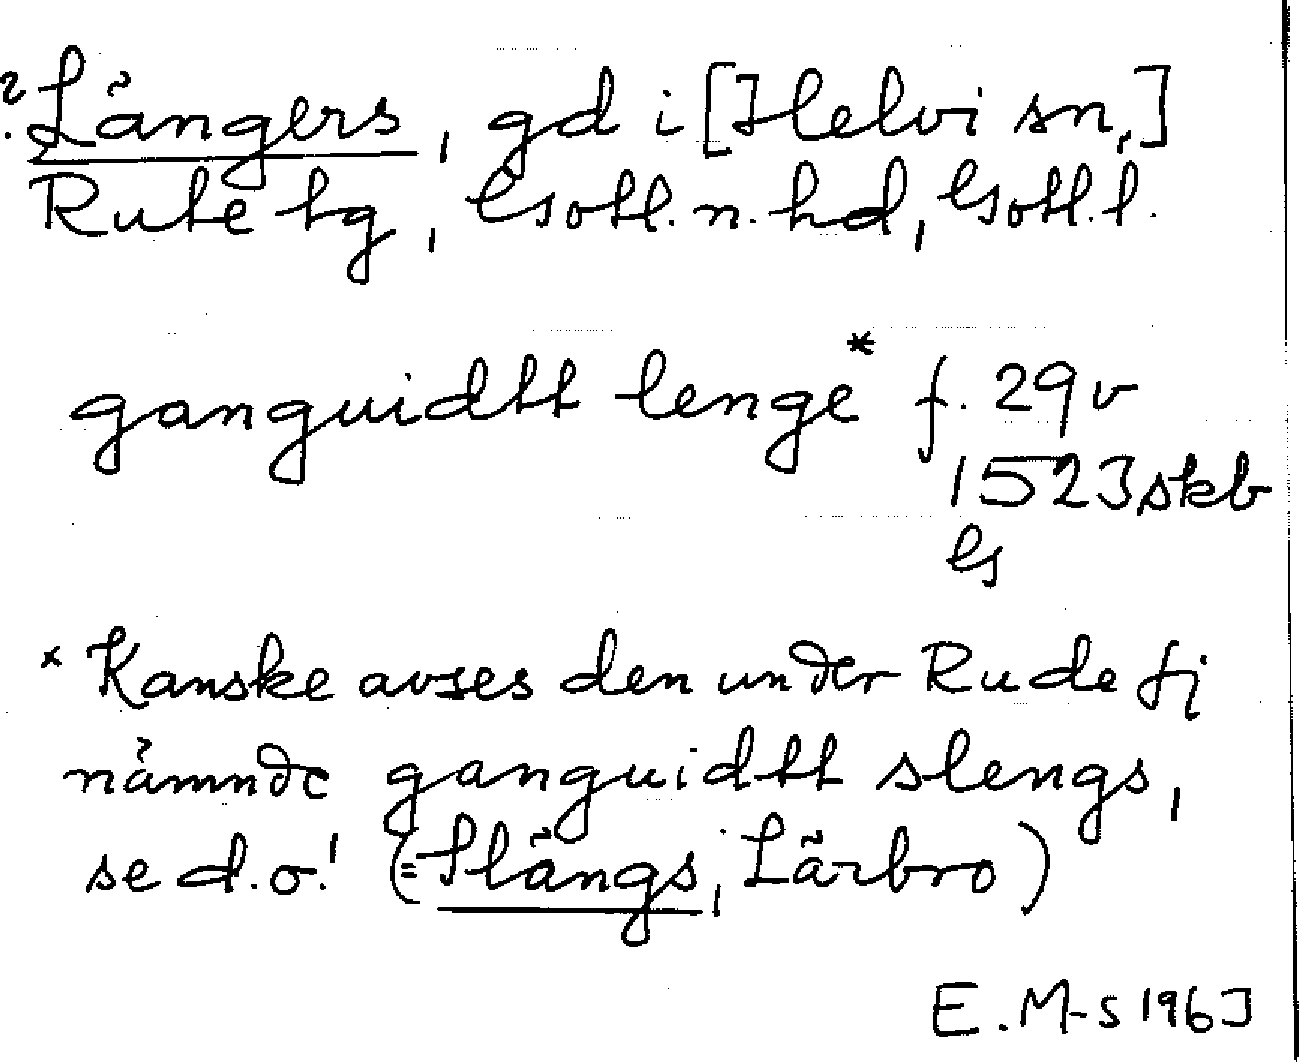 ? Längers, gd i [Helvi sn,]
Rute tg, Gotl. n. hd, Gotl. l.
ganguidtt lenge* f. 29v
1523 skb
G
* Kanske avses den under Rude fj
nämnde ganguidtt slengs,
se d.o.! (=Slängs, Lärbro)
E. M-s 1963